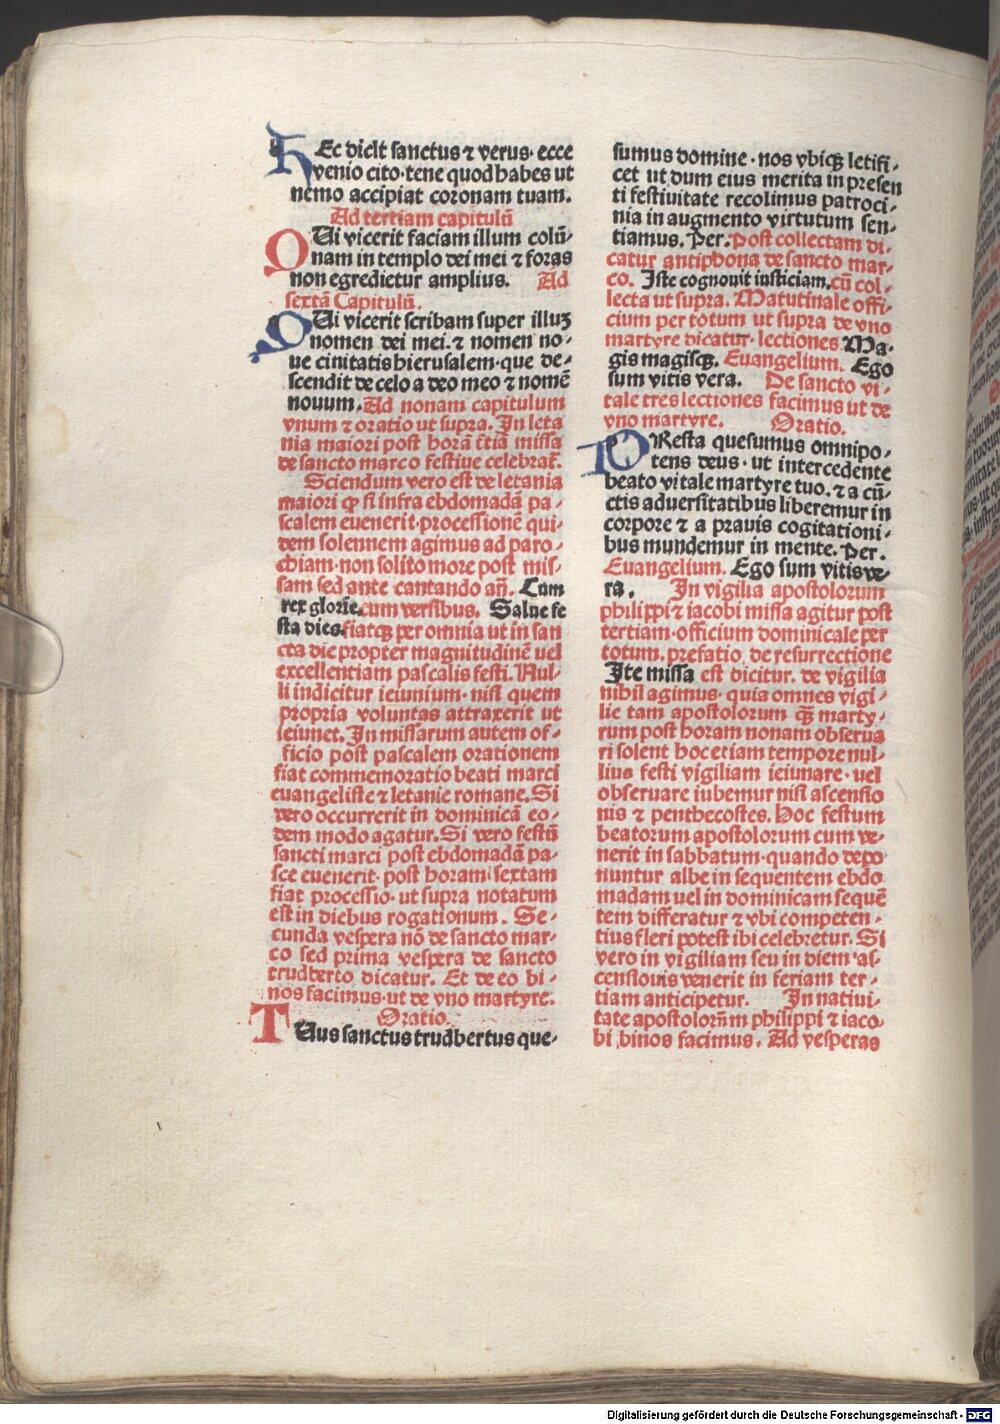 HEc dicit sanctus ⁊ verus· ecce
venio cito·tene quod habes ut
nemo accipiat coronam tuam.
Ad tertiam capitulū
QUi vicerit faciam illum colū-
nam in templo dei mei ⁊ foras
non egredietur amplius. Ad
sextā Capitulū.
QUi vicerit scribam super illuʒ
nomen dei mei.⁊ nomen no-
ue ciuitatis hierusalem·que de-
scendit de celo a deo meo ⁊ nomē
nouum. Ad nonam capitulum
vnum ⁊ oratio ut supra. In leta
nia maiori post horā t̄tiā missa
de sancto marco festiue celebrat̄.
Sciendum vero est de letania
maiori ꝙ si infra ebdomadā pa-
scalem euenerit·processionē qui-
dem solennem agimus ad paro-
chiam·non solito more post mis-
sam sed ante cantando an̄. Cum
rex glorie.cum versibus. Salue fe
sta dies.fiatqꝫ per omnia ut in san
cta die propter magnitudinē uel
excellentiam pascalis festi. Nul-
li indicitur ieiunium·nisi quem
propria voluntas attraxerit ut
ieiunet. In missarum autem of-
ficio post pascalem orationem
fiat commemoratio beati marci
euangeliste ⁊ letanie romane. Si
vero occurrerit in dominicā eo-
dem modo agatur. Si vero festū
sancti marci post ebdomadā pa-
sce euenerit·post horam sextam
fiat processio·ut supra notatum
est in diebus rogationum. Se-
cunda vespera nō de sancto mar-
co sed prima vespera de sancto
trudberto dicatur. Et de eo bi-
nos facimus·ut de vno martyre.
Oratio.
TUus sanctus trudbertus que-
sumus domine·nos vbiqꝫ letifi-
cet ut dum eius merita in presen
ti festiuitate recolimus patroci-
nia in augmento virtutum sen-
tiamus. Per. Post collectam di-
catur antiphona de sancto mar-
co. Iste cognouit iusticiam.cū col-
lecta ut supra. Matutinale offi-
cium per totum ut supra de vno
martyre dicatur·lectiones Ma-
gis magisqꝫ. Euangelium. Ego
sum vitis vera. De sancto vi-
tale tres lectiones facimus ut de
vno martyre. Oratio.
PResta quesumus omnipo-
tens deus·ut intercedente
beato vitale martyre tuo.⁊ a cū-
ctis aduersitatibus liberemur in
corpore ⁊ a prauis cogitationi-
bus mundemur in mente. Per.
Euangelium. Ego sum vitis ve-
ra. In vigilia apostolorum
philippi ⁊ iacobi missa agitur post
tertiam·officium dominicale per
totum. prefatio de resurrectione
Ite missa est dicitur. de vigilia
nihil agimus·quia omnes vigi-
lie tam apostolorum qꝫ marty-
rum post horam nonam obserua
ri solent hoc etiam tempore nul-
lius festi vigiliam ieiunare·uel
obseruare iubemur nisi ascensio
nis ⁊ penthecostes. Hoc festum
beatorum apostolorum cum ve-
nerit in sabbatum·quando depo
nuntur albe in sequentem ebdo
madam uel in dominicam sequē
tem differatur ⁊ vbi competen-
tius fieri potest ibi celebretur. Si
vero in vigiliam seu in diem as-
censionis venerit in feriam ter-
tiam anticipetur. In natiui-
tate apostolorum philippi ⁊ iaco-
bi binos facimus. Ad vesperas
Digitalisierung gefördert durch die Deutsche Forschungsgemeinschaft - DFG